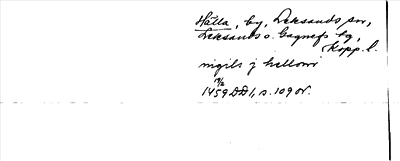 Hälla, by, Leksands sn,
Leksands o. Gagnefs tg,
Kopp. l.
nigils j hellom
1459 DD 1, s. 109 or.